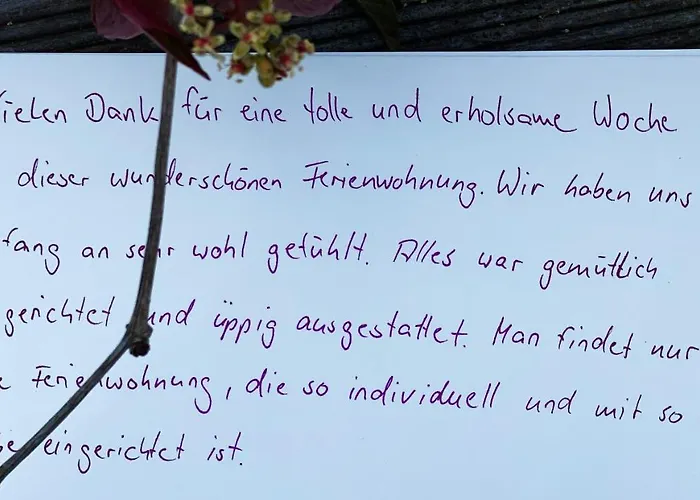 ielen Dank für eine tolle und erholsame Woche
dieser wunderschönen Ferienwohnung. Wir haben uns
fang an sehr wohl gefühlt. Alles war gemütlich
gerichtet und üppig ausgestattet. Man findet nur
e Ferienwohnung, die so individuell und mit so
be eingerichtet ist.